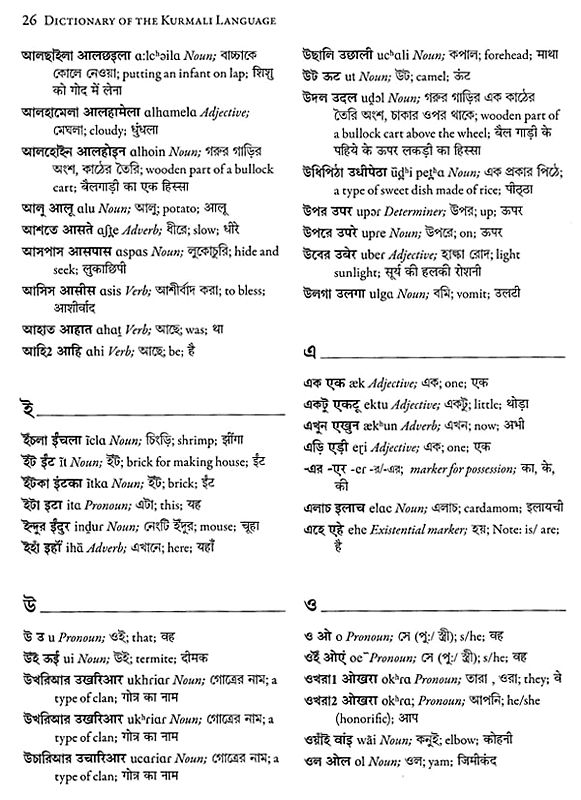 26 DICTIONARY OF THE KURMALI LANGUAGE
আলছাইলা आलछइला ɑːlcʰɔilɑ Noun; বাচ্চাকে
কোলে নেওয়া; putting an infant on lap; शिशु
को गोद में लेना
আলহামেলা आलहामेला ɑlhɑmelɑ Adjective;
মেঘলা; cloudy; धुंधला
আলহোইন आलहोइन ɑlhoin Noun; গরুর গাড়ির
অংশ, কাঠের তৈরি; wooden part of a bullock
cart; बैलगाड़ी का एक हिस्सा
আলু आलू ɑlu Noun; আলু; potato; आलू
আশতে आसते ɑʃt̪e Adverb; ধীরে; slow; धीरे
আসপাস आसपास ɑspɑs Noun; লুকোচুরি; hide and
seek; लुकाछिपी
আসিস आसीस ɑsis Verb; আশীর্বাদ করা; to bless;
आशीर्वाद
আহাত आहात ɑhɑt̪ Verb; আছে; was; था
আহি2 आहि ɑhi Verb; আছে; be; है
ই
ইঁচলা इंचला ĩclɑ Noun; চিংড়ি; shrimp; झींगा
ইঁট ईंट ĩt Noun; ইঁট; brick for making house; ईंट
ইঁটকা इंटका ĩtkɑ Noun; ইঁট; brick; ईंट
ইটা इटा itɑ Pronoun; এটা; this; यह
ইন্দুর ईंदुर ind̪ur Noun; নেংটি ইঁদুর; mouse; चूहा
ইহাঁ इहाँ ihɑ̃ Adverb; এখানে; here; यहाँ
উ
উ उ u Pronoun; ওই; that; वह
উই ऊई ui Noun; উই; termite; दीमक
উখরিআর उखरिआर ukhriɑr Noun; গোত্রের নাম; a
type of clan; गोत्र का नाम
উখরিআর उखरिआर ukʰriɑr Noun; গোত্রের নাম; a
type of clan; गोत्र का नाम
উচারিআর उचारिआर ucɑriɑr Noun; গোত্রের নাম; a
type of clan; गोत्र का नाम
উছালি उछाली ucʰɑli Noun; কপাল; forehead; माथा
উট ऊट ut Noun; উট; camel; ऊंट
উদল उदल ud̪ɔl Noun; গরুর গাড়ির এক কাঠের
তৈরি অংশ, চাকার ওপর থাকে; wooden part of
a bullock cart above the wheel; बैल गाड़ी के
पहिये के ऊपर लकड़ी का हिस्सा
উধিপিঠা उधीपेठा ũd̪ʰi pet̪ʰɑ Noun; এক প্রকার পিঠে;
a type of sweet dish made of rice; पीठ्ठा
উপর उपर upɔr Determiner; উপর; up; ऊपर
উপরে उपरे upre Noun; উপরে; on; ऊपर
উবের उबेर uber Adjective; হাল্কা রোদ; light
sunlight; सूर्य की हलकी रोशनी
উলগা उलगा ulgɑ Noun; বমি; vomit; उलटी
এ
এক एक æk Adjective; এক; one; एक
একটু एकटू ektu Adjective; একটু; little; थोड़ा
এখুন एखुन ækʰun Adverb; এখন; now; अभी
এড়ি एड़ी eɽi Adjective; এক; one; एक
-এর -एर -er -র/-এর; marker for possession; का, के,
की
এলাচ इलाच elɑc Noun; এলাচ; cardamom; इलायची
এহে एहे ehe Existential marker; হয়; Note: is/ are;
है
ও
ও ओ o Pronoun; সে (পু:/ স্ত্রী); s/he; वह
ওঁই ओएं oe˜ Pronoun; সে (পু:/ স্ত্রী); s/he; वह
ওখরা1 ओखरा okʰrɑ Pronoun; তারা , ওরা; they; वे
ওখরা2 ओखरा okʰrɑ; Pronoun; আপনি; he/she
(honorific); आप
ওয়াঁই वांइ wɑ̃i Noun; কনুই; elbow; कोहनी
ওল ओल ol Noun; ওল; yam; जिमीकंद